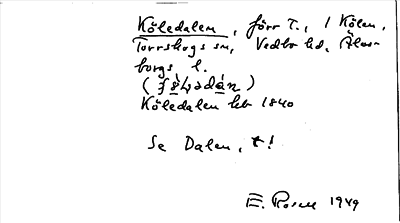 Köledalen, förr T., / Kölen,
Torrskogs sn, Vedbo hd, Älvs-
borgs l.
Köledalen hbr 1840
Se Dalen, t!
E. Rosell 1949